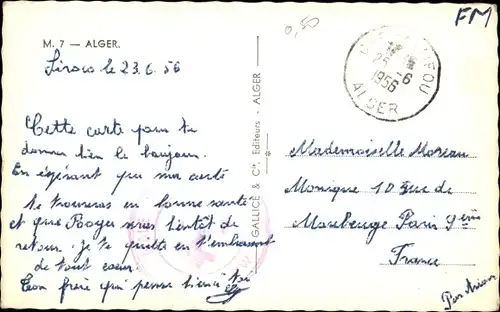 M. 7 — ALGER.
Siroco le 23.6.56
Cette carte pour te
donner bien le bonjour.
En espérant que ma carte
te trouveras en bonne santé
et que Roger seras bientôt de
retour. Je te quitte en t'embrassant
de tout coeur.
Ton frère qui pense bien à toi
GALLICE & Cie, Editeurs - ALGER
0,50
FM
25-6
1956
ALGER
Mademoiselle Moreau
Monique 10 Rue de
Maubeuge Paris 9eme
France
Par Avion